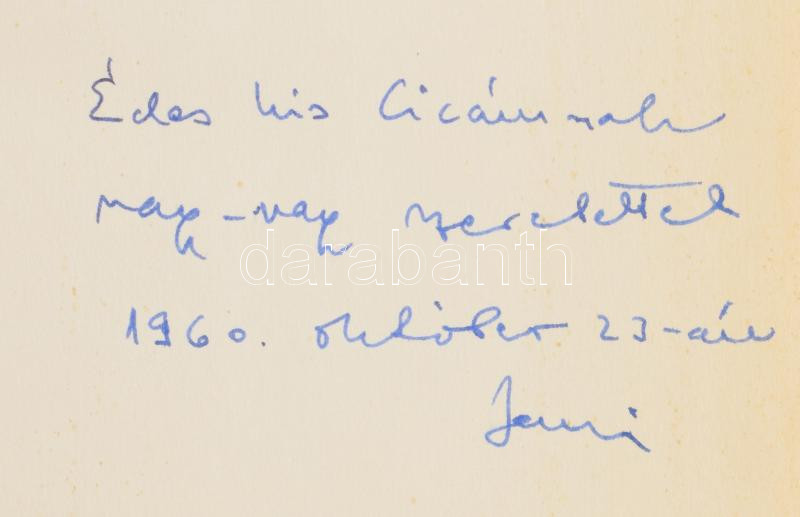 Édes kis Cicámnak
nagy-nagy szeretettel
darabanth
1960. október 23-án
Jani